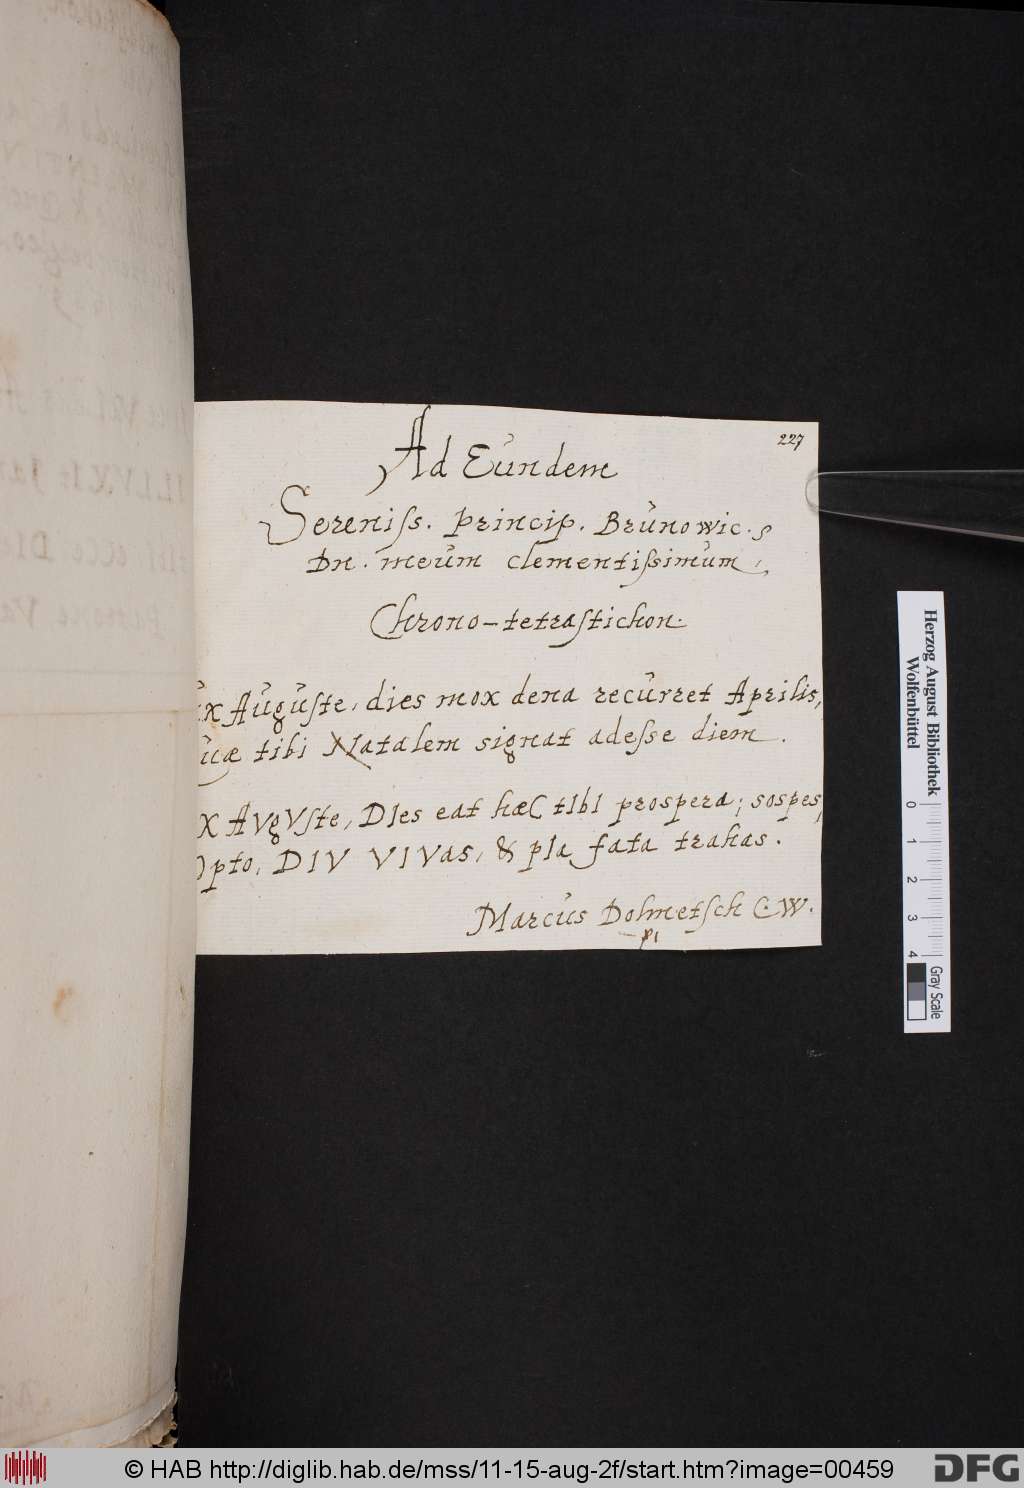 227
Ad Eundem
Sereniss. Princip. Brunowic.
Dn. meum clementissimum,
Chrono-tetrastichon.
ux Auguste, dies mox dena recurret Aprilis,
uæ tibi Natalem signat adesse diem.
X AVgVste, DIes eat hæC tIbI prospera; sospes,
Opto, DIV VIVas, & pIa fata trahas.
Marcus Dolmetsch C.W.
Herzog August Bibliothek
Wolfenbüttel
0 1 2 3 4
Gray Scale
© HAB http://diglib.hab.de/mss/11-15-aug-2f/start.htm?image=00459
DFG